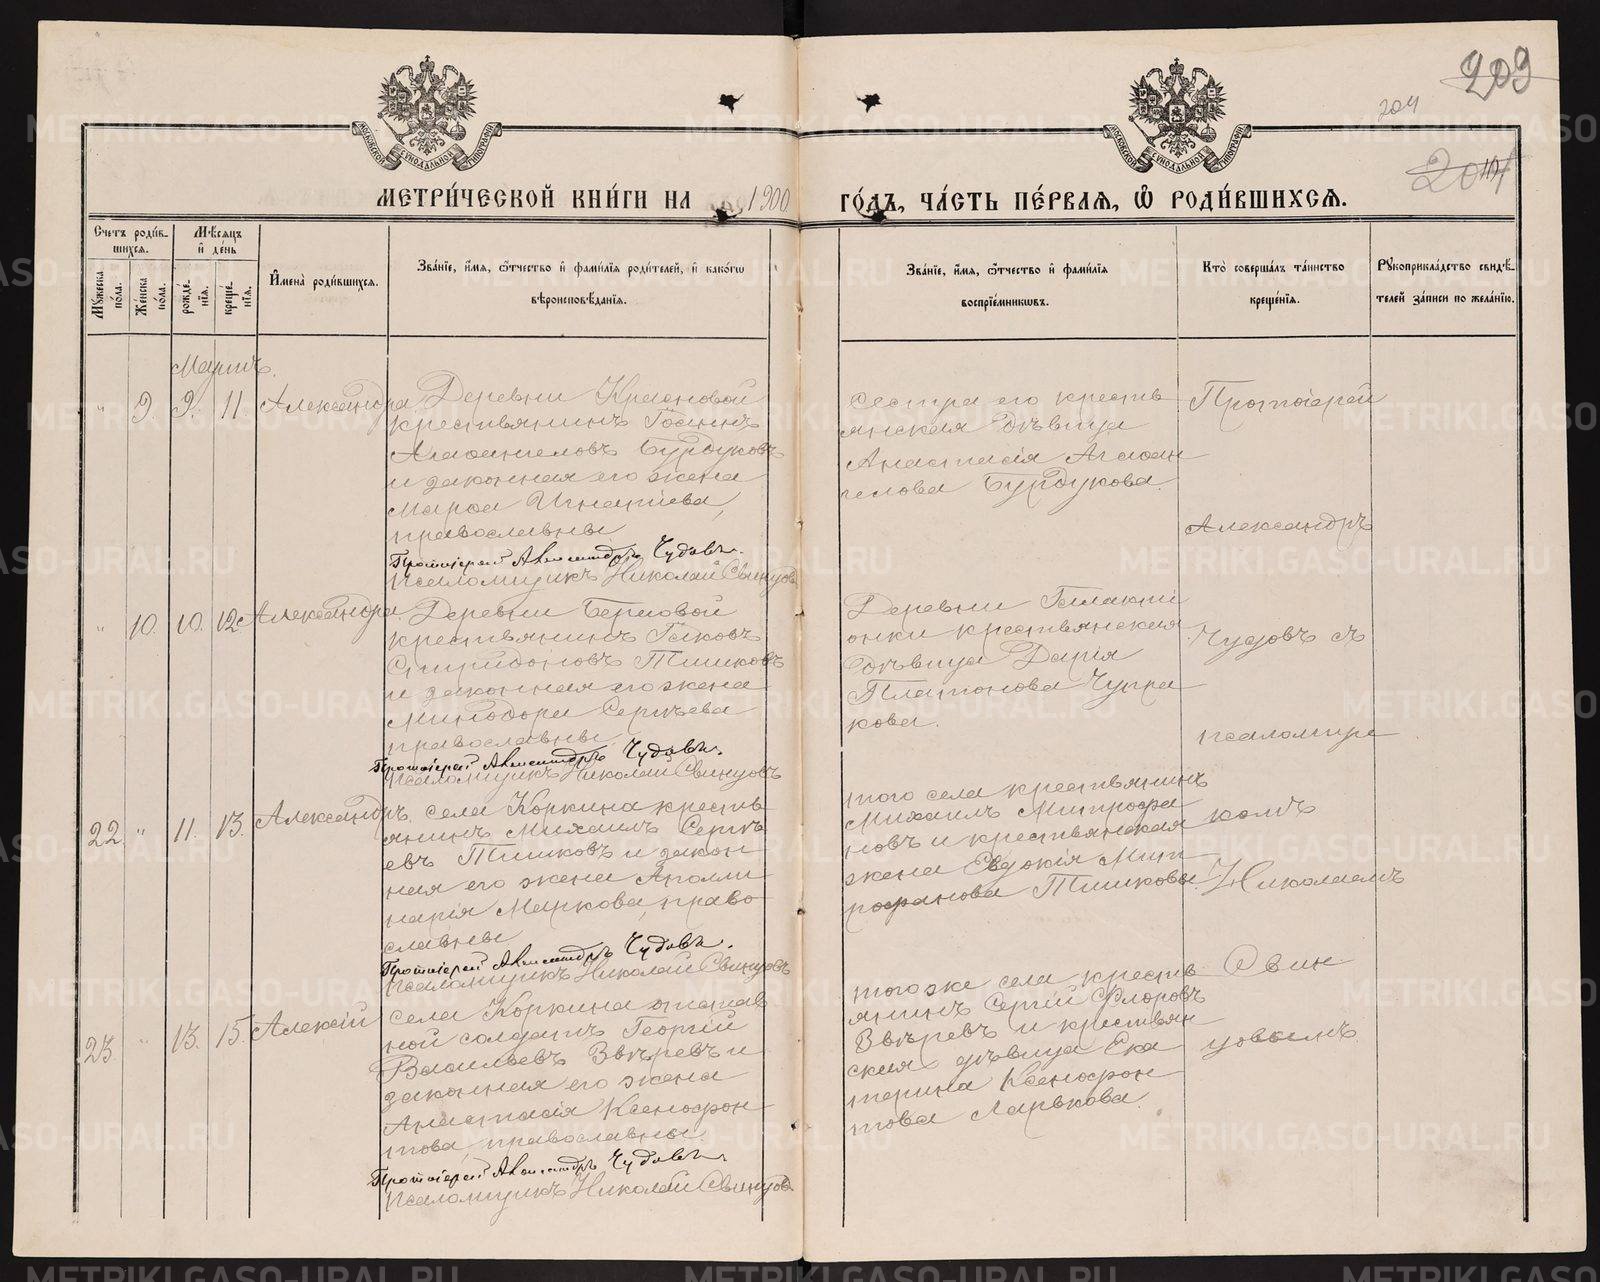 209
204
МЕТРИ́ЧЕСКОЙ КНИ́ГИ НА 1900 ГО́ДЪ, ЧА́СТЬ ПЕ́РВАЯ, Ѽ РОДИ́ВШИХСЯ.
Счетъ роди́в-
шихся.
Мужеска по́ла.
Же́нска по́ла.
Мѣсяцъ и де́нь
рожде́-
нїя.
креще́-
нїя.
Имена̀ роди́вшихся.
Зва́нїе, и́мя, ѻ҆́тчество и фами́лїя роди́телей, и како́гѡ
вѣроисповѣ́данїя.
Зва́нїе, и́мя, ѻ҆́тчество и фами́лїя
воспрїе́мниковъ.
Кто̀ соверша́лъ та́инство
креще́нїя.
Рукоприкла́дство свидѣ́-
телей за́писи по жела́нїю.
Мартъ.
" 9. 9. 11. Александра
Деревни
крестьянинъ
Бурдуковъ
и законная его жена
Марфа Игнатіева,
православны
Протоіерей Александръ Чудовъ.
Псаломщикъ Николай Свинцовъ
сестра его кресть
янская дѣвица
Анастасія Агафан
гелова Бурдукова.
" 10. 10. 12. Александра
Деревни
крестьянинъ Іаковъ
Спиридоновъ Тишковъ
и законная его жена
Минодора Сергѣева
православны
Протоіерей Александръ Чудовъ.
Псаломщикъ Николай Свинцовъ
Деревни
онки крестьянская
дѣвица Дарія
Платонова Чупра
кова.
22. " 11. 13. Александръ
села Коркина кресть
янинъ Михаилъ Сергѣ
евъ Тишковъ и закон
ная его жена Аполли
нарія Маркова, право
славны
Протоіерей Александръ Чудовъ.
Псаломщикъ Николай Свинцовъ
того села крестьянинъ
Михаилъ Митрофа
новъ и крестьянская
жена Евдокія Мит
рофанова Тишковы
23. " 13. 15. Алексій
села Коркина отстав
ной солдатъ Георгій
Васильевъ Звѣревъ и
законная его жена
Анастасія Ксенофон
това, православны.
Протоіерей Александръ Чудовъ.
Псаломщикъ Николай Свинцовъ
того же села кресть
янинъ Сергій Флоровъ
Звѣревъ и крестьян
ская дѣвица Ека
терина Ксенофон
това Ларькова.
Протоіерей
Александръ
Чудовъ съ
псаломщи
комъ
Николаемъ
Свин
цовымъ.
METRIKI.GASO-URAL.RU